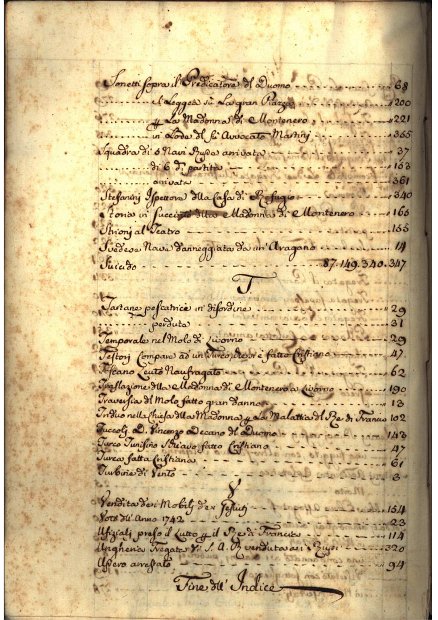 Sonetti sopra il Predicatore del Duomo 68
si Legge su La gran Piazza 200
p La Madonna di Montenero 221
in Lode del Avvocato Martini 365
Squadra di 6 Navi Russe arrivata 37
di 6 di partita 163
arrivata 361
Stefanini Ispettore della Casa di Refugio 340
Storia in succinto della Madonna di Montenero 166
Strioni al Teatro 135
Svedese Nave danneggiata da un' Uragano 14
Suicidio 87.149.340.347
T
Tartane pescatrice in disordine 29
perduta 31
Temporale nel Molo di Livorno 29
Testori Compare ad un Turco fatto Cristiano 47
Toscano Leuto Naufragato 62
Traslazione della Madonna di Montenero a Livorno 190
Traversia del Molo fatto gran danno 13
Triduo nella Chiesa della Madonna p La Malattia del Re di Francia 102
D. Vincenzo Decano del Duomo 143
Turco Tunisino Schiavo fatto Cristiano 47
Turca fatta Cristiana 61
Turbine di Vento 3
V
Vendita dei Mobili dei Gesuiti 154
dell' Anno 1742 23
Ufiziali preso il Lutto p il Re di Francia 114
Ungheria Fregata di S. A. R. venduta ai Russi 320
arrestato 94
Fine dell' Indice